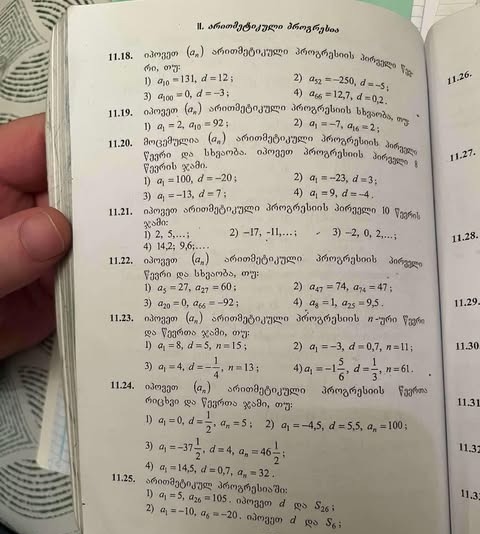 II. არითმეტიკული პროგრესია
11.18. იპოვეთ (aₙ) არითმეტიკული პროგრესიის პირველი წევ-
რი, თუ:
1) a₁₀ = 131, d = 12; 2) a₅₂ = –250, d = –5;
3) a₁₀₀ = 0, d = –3; 4) a₆₆ = 12,7, d = 0,2.
11.19. იპოვეთ (aₙ) არითმეტიკული პროგრესიის სხვაობა, თუ:
1) a₁ = 2, a₁₀ = 92; 2) a₁ = –7, a₁₆ = 2;
11.20. მოცემულია (aₙ) არითმეტიკული პროგრესიის პირველი
წევრი და სხვაობა. იპოვეთ პროგრესიის პირველი 8
წევრის ჯამი.
1) a₁ = 100, d = –20; 2) a₁ = –23, d = 3;
3) a₁ = –13, d = 7; 4) a₁ = 9, d = –4.
11.21. იპოვეთ არითმეტიკული პროგრესიის პირველი 10 წევრის
ჯამი:
1) 2, 5,...; 2) –17, -11,...; 3) –2, 0, 2,...;
4) 14,2; 9,6;....
11.22. იპოვეთ (aₙ) არითმეტიკული პროგრესიის პირველი
წევრი და სხვაობა, თუ:
1) a₅ = 27, a₂₇ = 60; 2) a₄₇ = 74, a₇₄ = 47;
3) a₂₀ = 0, a₆₆ = –92; 4) a₈ = 1, a₂₅ = 9,5.
11.23. იპოვეთ (aₙ) არითმეტიკული პროგრესიის n-ური წევრი
და წევრთა ჯამი, თუ:
1) a₁ = 8, d = 5, n = 15; 2) a₁ = –3, d = 0,7, n = 11;
3) a₁ = 4, d = –1/4, n = 13; 4) a₁ = –1 5/6, d = 1/3, n = 61.
11.24. იპოვეთ (aₙ) არითმეტიკული პროგრესიის წევრთა
რიცხვი და წევრთა ჯამი, თუ:
1) a₁ = 0, d = 1/2, aₙ = 5; 2) a₁ = –4,5, d = 5,5, aₙ = 100;
3) a₁ = –37 1/2, d = 4, aₙ = 46 1/2;
4) a₁ = 14,5, d = 0,7, aₙ = 32.
11.25. არითმეტიკულ პროგრესიაში:
1) a₁ = 5, a₂₆ = 105. იპოვეთ d და S₂₆;
2) a₁ = –10, a₆ = –20. იპოვეთ d და S₆;
11.26.
11.27.
11.28.
11.29.
11.30
11.31
11.32